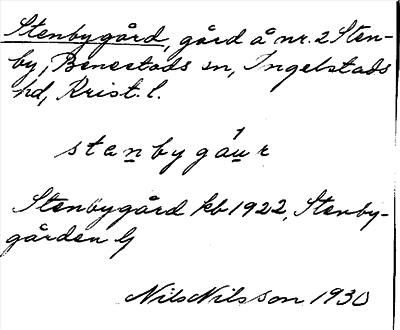 Stenbygård, gård å nr. 2 Sten-
by, Benestads sn, Ingelstads
hd, Krist. l.
stenbygáur
Stenbygård kb 1922, Stenby-
gården G
Nils Nilsson 1930